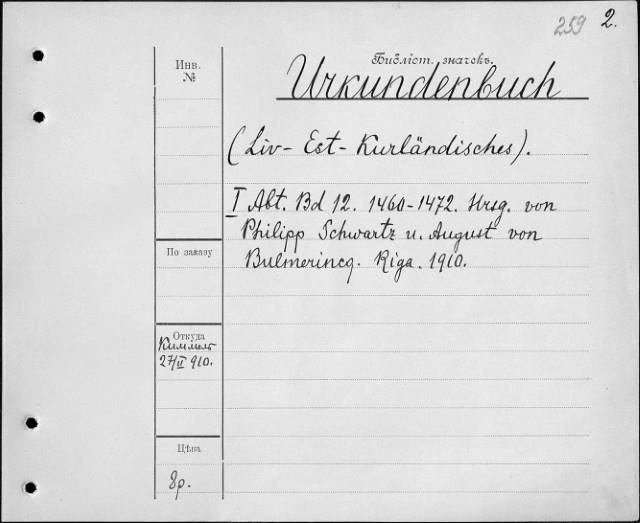 259 2.
Инв.
№
Библіот. значекъ.
Urkundenbuch
(Liv- Est- Kurländisches).
I Abt. Bd 12. 1460-1472. Hrsg. von
Philipp Schwartz u. August von
Bulmerincq. Riga. 1910.
По заказу
Откуда
Киммель
27/II 910.
Цѣнъ
8р.